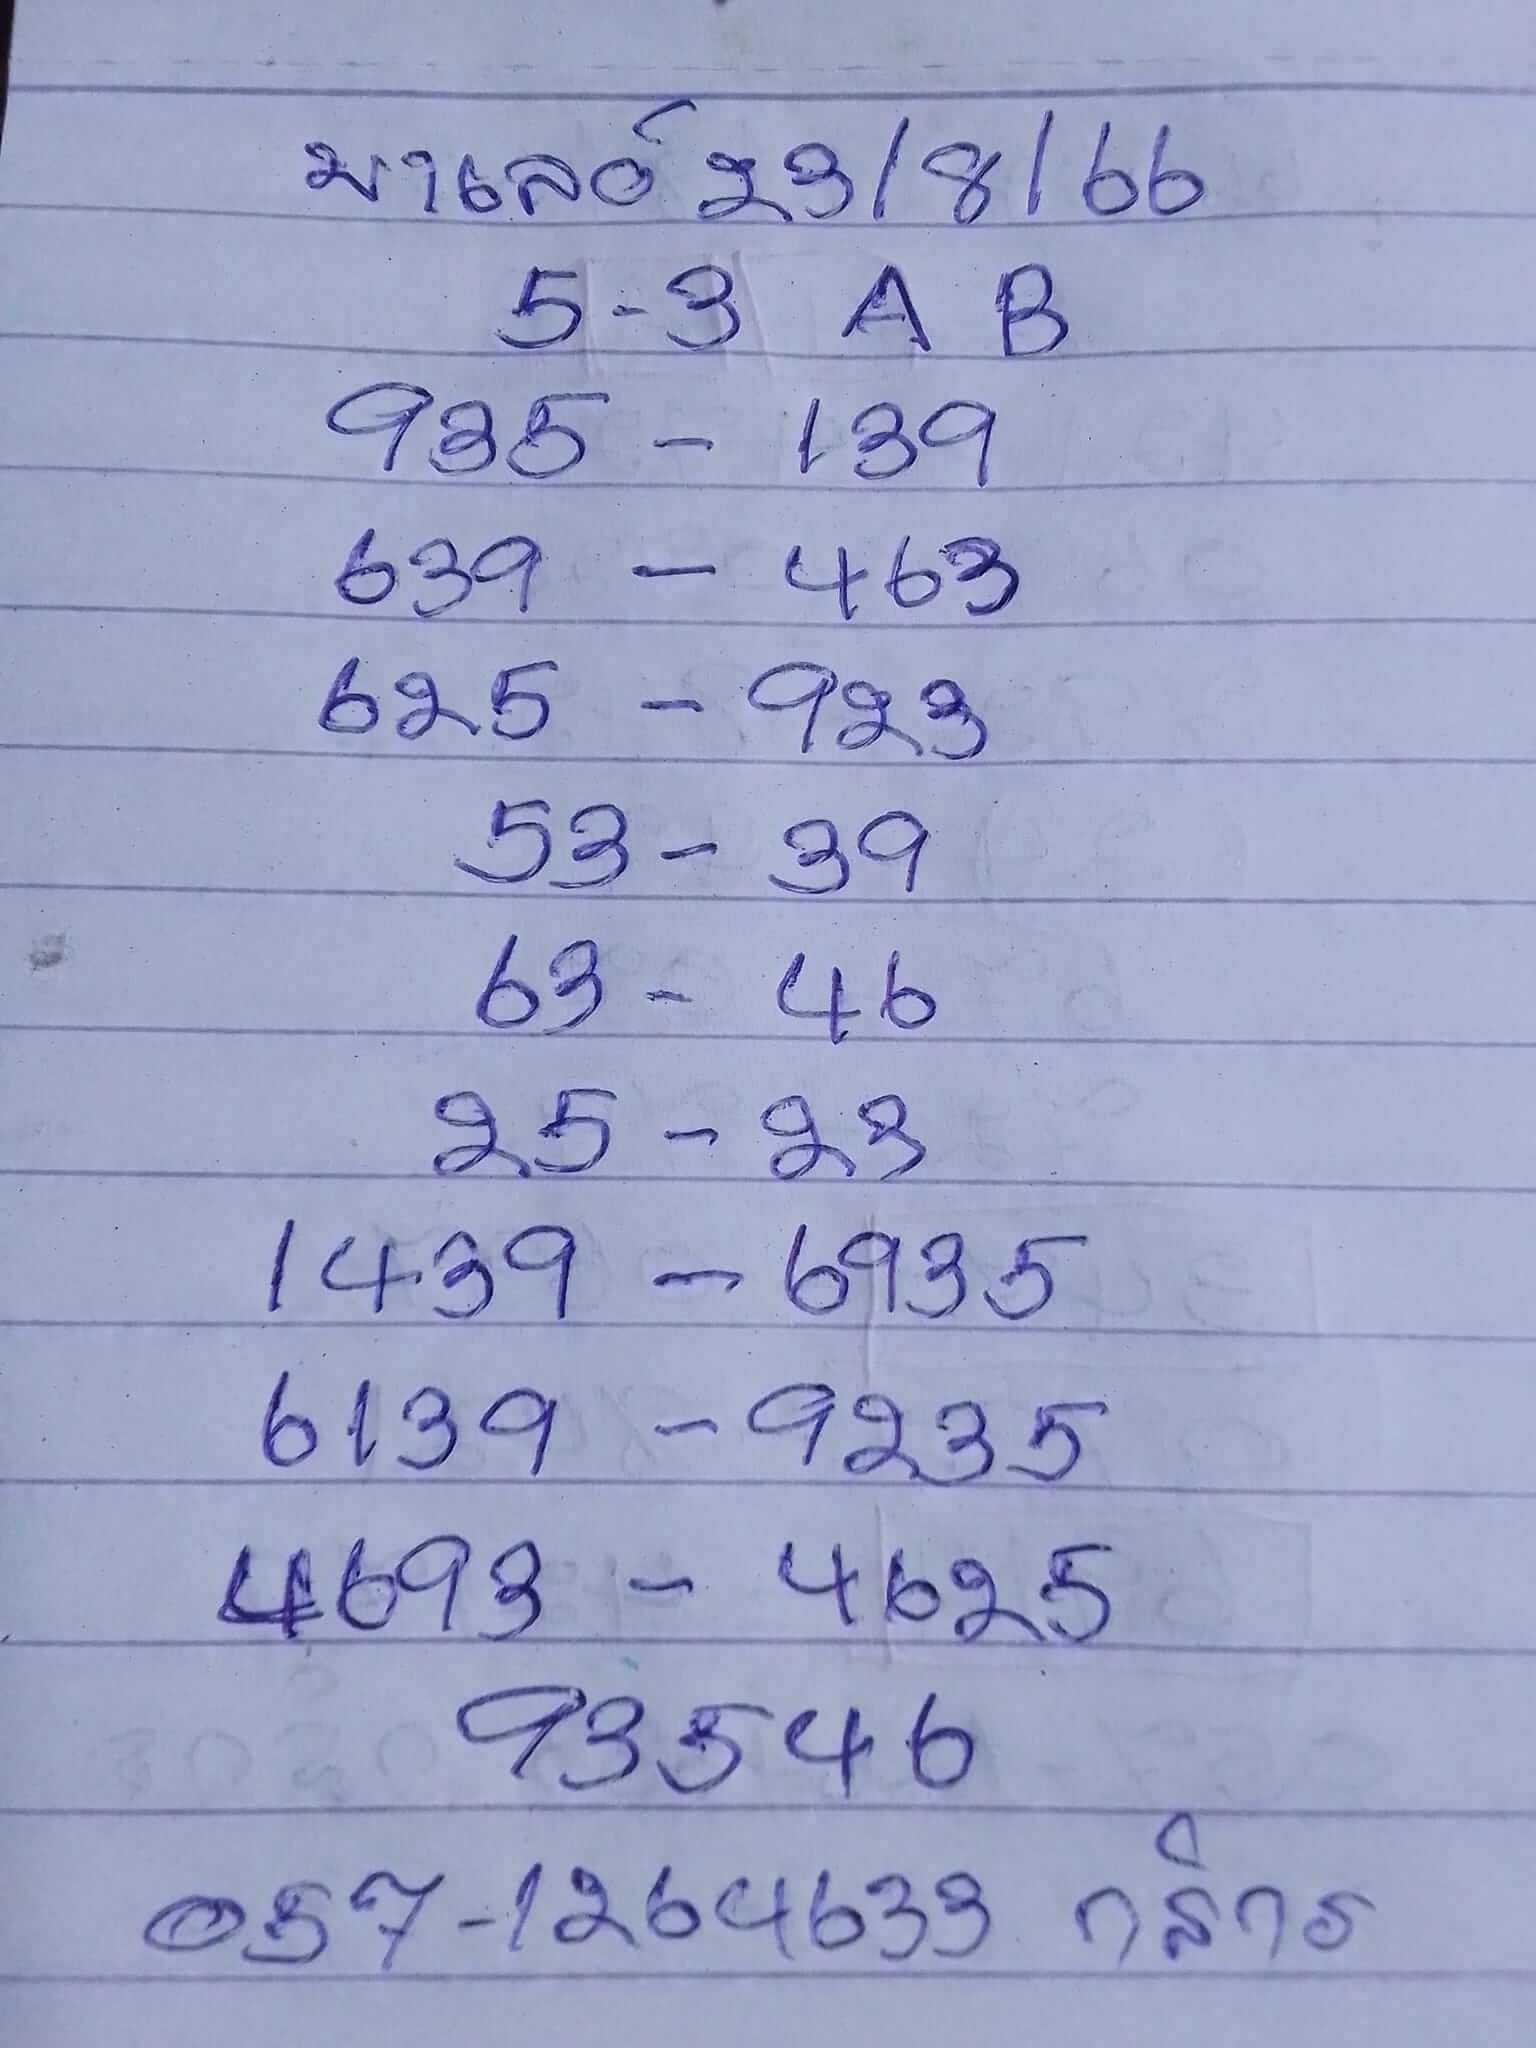 มาเลย์ 23/8/66
5-3 A B
935 - 139
639 - 463
625 - 923
53 - 39
63 - 46
25 - 23
1439 - 6935
6139 - 9235
4693 - 4625
93546
057-1264633 กสิกร